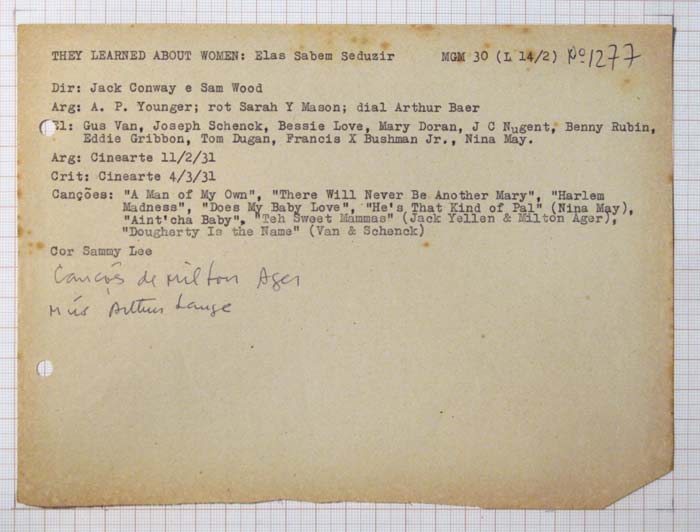 THEY LEARNED ABOUT WOMEN: Elas Sabem Seduzir MGM 30 (L 14/2) Nº1277
Dir: Jack Conway e Sam Wood
Arg: A. P. Younger; rot Sarah Y Mason; dial Arthur Baer
El: Gus Van, Joseph Schenck, Bessie Love, Mary Doran, J C Nugent, Benny Rubin,
Eddie Gribbon, Tom Dugan, Francis X Bushman Jr., Nina May.
Arg: Cinearte 11/2/31
Crit: Cinearte 4/3/31
Canções: "A Man of My Own", "There Will Never Be Another Mary", "Harlem
Madness", "Does My Baby Love", "He's That Kind of Pal" (Nina May),
"Aint'cha Baby", "Teh Sweet Mammas" (Jack Yellen & Milton Ager),
"Dougherty Is the Name" (Van & Schenck)
Cor Sammy Lee
Canções de Milton Ager
Mús Arthur Lange